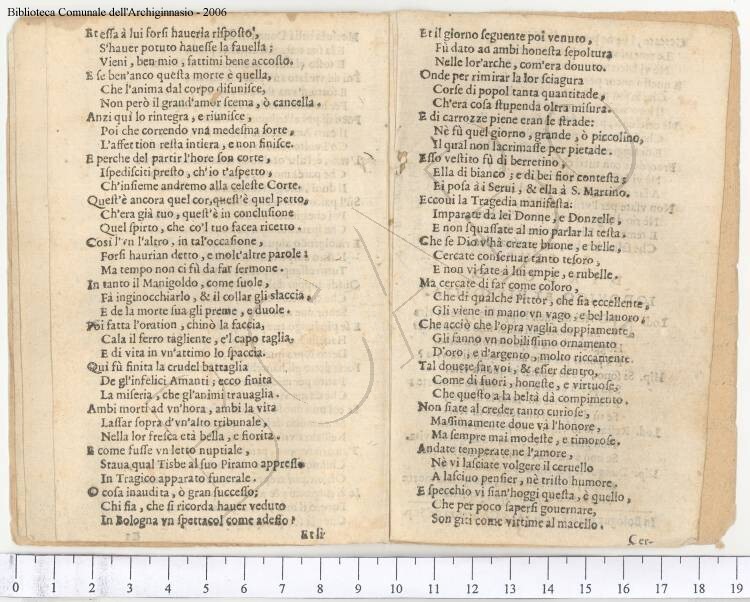 Biblioteca Comunale dell'Archiginnasio - 2006
Et essa à lui forsi haueria risposto,
S'hauer potuto hauesse la fauella;
Vieni, ben mio, fattimi bene accosto.
E se ben'anco questa morte è quella,
Che l'anima dal corpo disunisce,
Non però il grand'amor scema, ò cancella.
Anzi quì lo rintegra, e riunisce,
Poi che correndo vna medesma sorte,
L'affettion resta intiera, e non finisce.
E perche del partir l'hore son corte,
Ispedisciti presto, ch'io t'aspetto,
Ch'insieme andremo alla celeste Corte.
Quest'è ancora quel cor, quest'è quel petto,
Ch'era già tuo, quest'è in conclusione
Quel spirto, che co'l tuo facea ricetto.
Così l'vn l'altro, in tal'occasione,
Forsi haurian detto, e molt'altre parole;
Ma tempo non ci fù da far sermone.
In tanto il Manigoldo, come suole,
Fà inginocchiarlo, & il collar gli slaccia,
E de la morte sua gli preme, e duole.
Poi fatta l'oration, chinò la faccia,
Cala il ferro tagliente, e'l capo taglia,
E di vita in vn'attimo lo spaccia.
Quì fù finita la crudel battaglia
De gl'infelici Amanti; ecco finita
La miseria, che gl'animi trauaglia.
Ambi morti ad vn'hora, ambi la vita
Lassar sopra d'vn'alto tribunale,
Nella lor fresca età bella, e fiorita.
E come fusse vn letto nuptiale,
Staua qual Tisbe al suo Piramo appresso
In Tragico apparato funerale.
O cosa inaudita, ò gran successo;
Chi fia, che si ricorda hauer veduto
In Bologna vn spettacol come adesso?
Et il
Et il giorno seguente poi venuto,
Fù dato ad ambi honesta sepoltura
Nelle lor'arche, com'era douuto.
Onde per rimirar la lor sciagura
Corse di popol tanta quantitade,
Ch'era cosa stupenda oltra misura.
E di carrozze piene eran le strade:
Nè fù quel giorno, grande, ò piccolino,
Il qual non lacrimasse per pietade.
Esso vestito fù di berrettino,
Ella di bianco; e di bei fior contesta;
Ei posa à i Serui, & ella à S. Martino.
Eccoui la Tragedia manifesta:
Imparate da lei Donne, e Donzelle,
E non squassate al mio parlar la testa.
Che se Dio v'hà create buone, e belle,
Cercate conseruar tanto tesoro,
E non vi fate à lui empie, e rubelle.
Ma cercate di far come coloro,
Che di qualche Pittor, che sia eccellente,
Gli viene in mano vn vago, e bel lauoro,
Che acciò che l'opra vaglia doppiamente,
Gli fanno vn nobilissimo ornamento
D'oro, e d'argento, molto riccamente.
Tal douete far voi, & esser dentro,
Come di fuori, honeste, e virtuose,
Che questo a la beltà dà compimento.
Non siate al creder tanto curiose,
Massimamente doue và l'honore,
Ma sempre mai modeste, e timorose.
Andate temperate ne l'amore,
Nè vi lasciate volgere il ceruello
A lasciuo pensier, nè tristo humore.
E specchio vi sian'hoggi questa, e quello,
Che per poco sapersi gouernare,
Son giti come vittime al macello.
Cer-
0 1 2 3 4 5 6 7 8 9 10 11 12 13 14 15 16 17 18 19